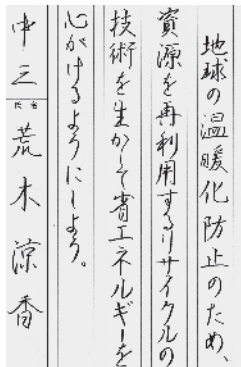 地球の温暖化防止のため、
資源を再利用するリサイクルの
技術を生かして省エネルギーを
心がけるようにしよう。
中三 氏名 荒木涼香